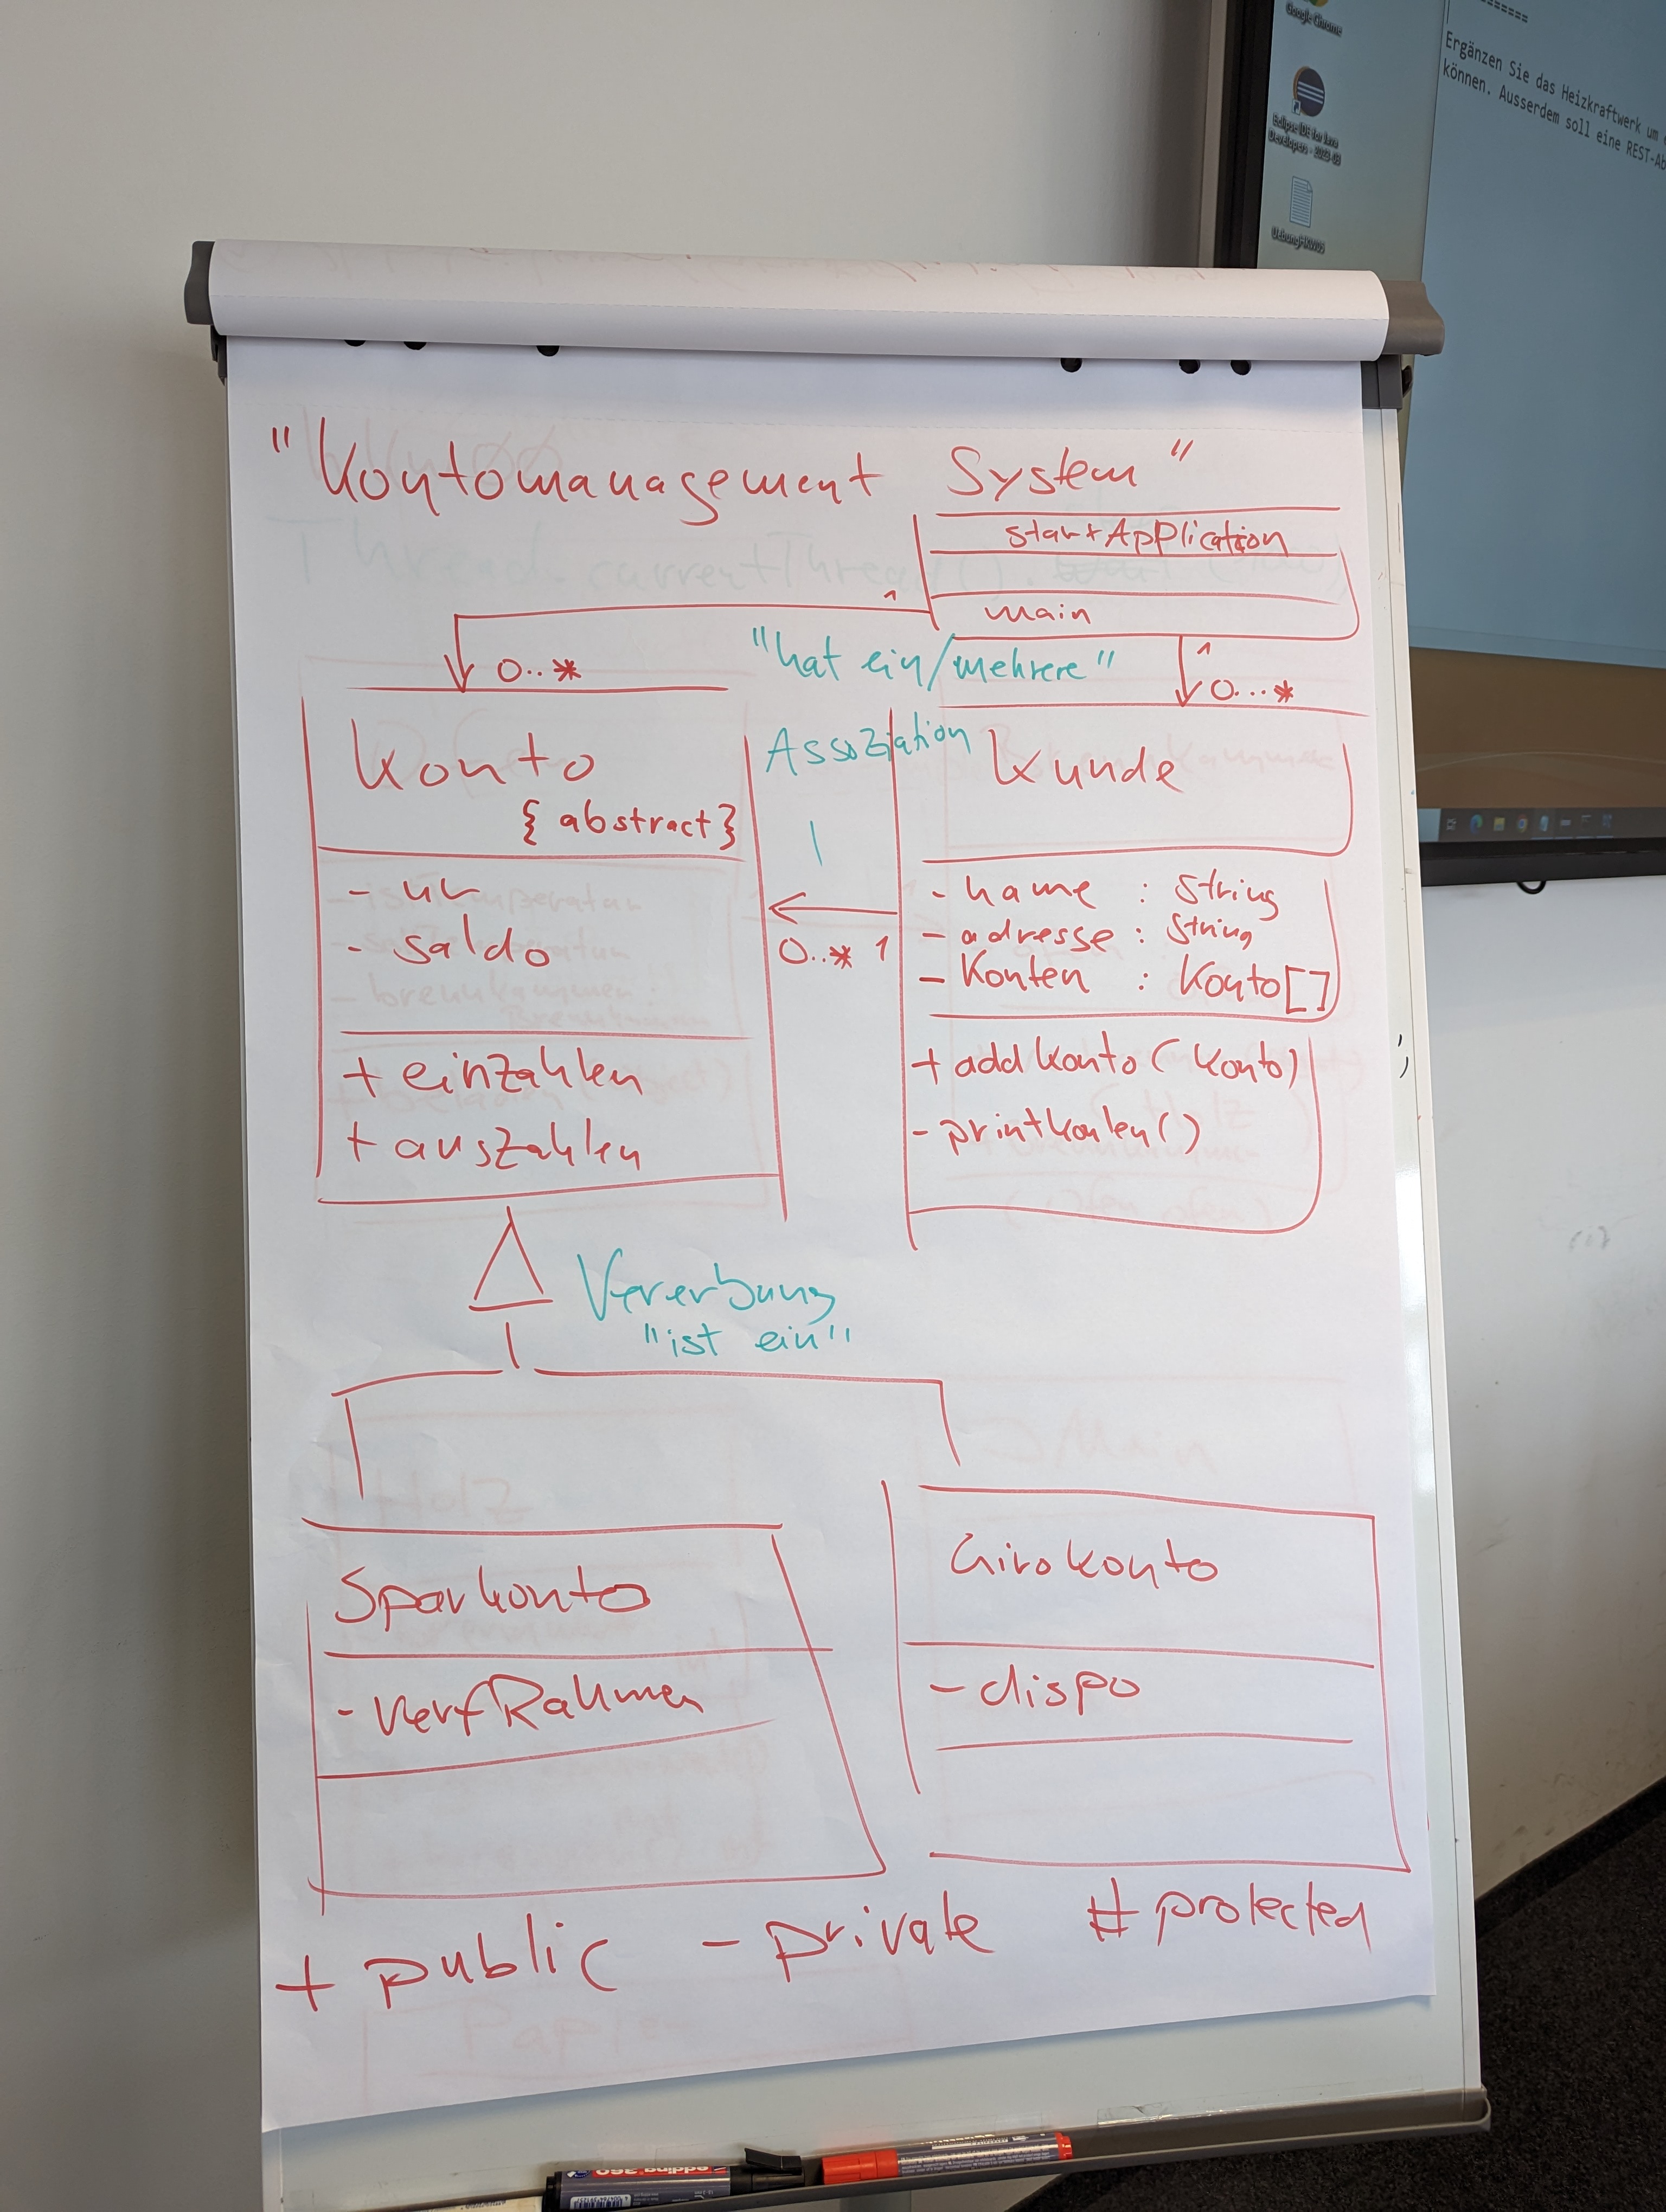 Google Chrome
Eclipse IDE for Java
Developers - 2023-03
=======
Ergänzen Sie das Heizkraftwerk um
können. Ausserdem soll eine REST-Ab
"Kontomanagement System"
startApplication
main
1
0..*
"hat ein/mehrere"
1
0...*
Konto
{abstract}
- nr
- saldo
+ einzahlen
+ auszahlen
Assoziation
0..* 1
Kunde
- name : String
- adresse : String
- Konten : Konto[]
+ addKonto(Konto)
- printKonten()
Vererbung
"ist ein"
Sparkonto
- verfRahmen
Girokonto
- dispo
+ public - private # protected
edding 360